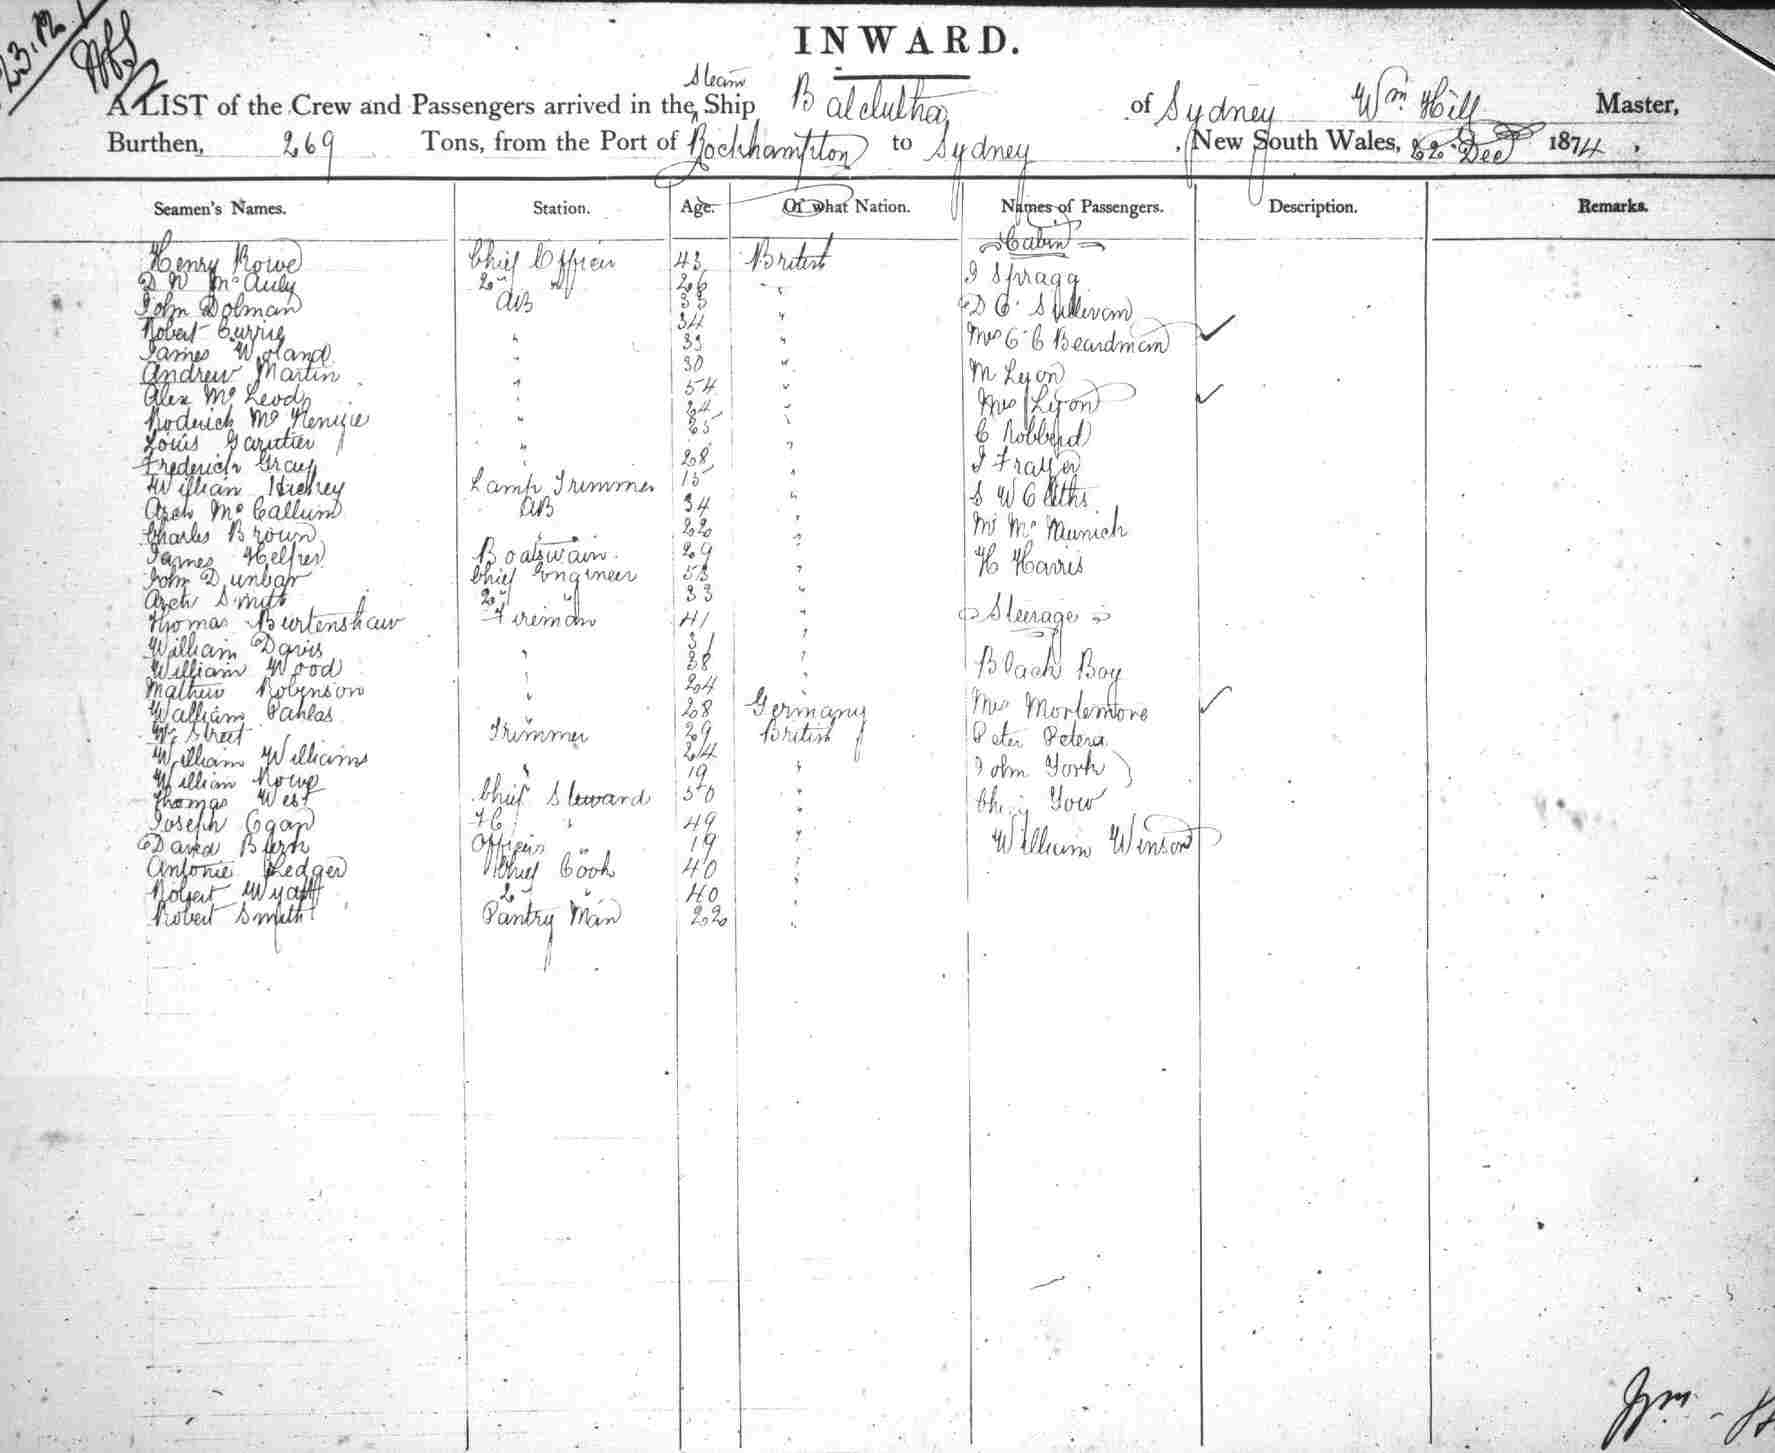 23.12
INWARD.
Steam
A LIST of the Crew and Passengers arrived in the Ship Balclutha of Sydney Wm Hill Master,
Burthen, 269 Tons, from the Port of Rockhampton to Sydney, New South Wales, 22 Dec 1874.
Seamen's Names. Station. Age. Of what Nation. Names of Passengers. Description. Remarks.
Cabin
Henry Rowe Chief Officer 43 British
D W McAuly 2nd " 26 " J Spragg
John Dolman AB 33 " D O'Sullivan
Robert Currie 34 "
James Woland " 33 " Mrs C C Beardman
Andrew Martin 30 " M Lyon
Alex McLeod " 54 "
Roderick McKenzie " 24 " Mrs Lyon
Louis " 25 " C Robberd
Frederich Gray " 28 J Frayer
William Hickey Lamp Trimmer 15 "
Arch McCallum AB 34 " S W
Charles Brown " 22 " Mr
James Helper Boatswain 29 " H Harris
John Dunbar Chief Engineer 53 "
Arch Smith 2nd " 33 "
Thomas Burtenshaw Fireman 41 " Steerage
William Davis " 31 "
William Wood " 38 " Black Boy
Mathew Robinson " 24 "
William 28 Germany Mrs Mortemore
Wm Street Trimmer 29 British Peter
William Williams " 24 " John York
William Rowe " 19 "
Thomas West Chief Steward 50 " Yow
Joseph Egan FC " 49 "
David Burn Officers " 19 " William Winson
Antonie Ledger Chief Cook 40 "
Robert Wyatt 2nd " 40 "
Robert Smith Pantry Man 22 "
Wm